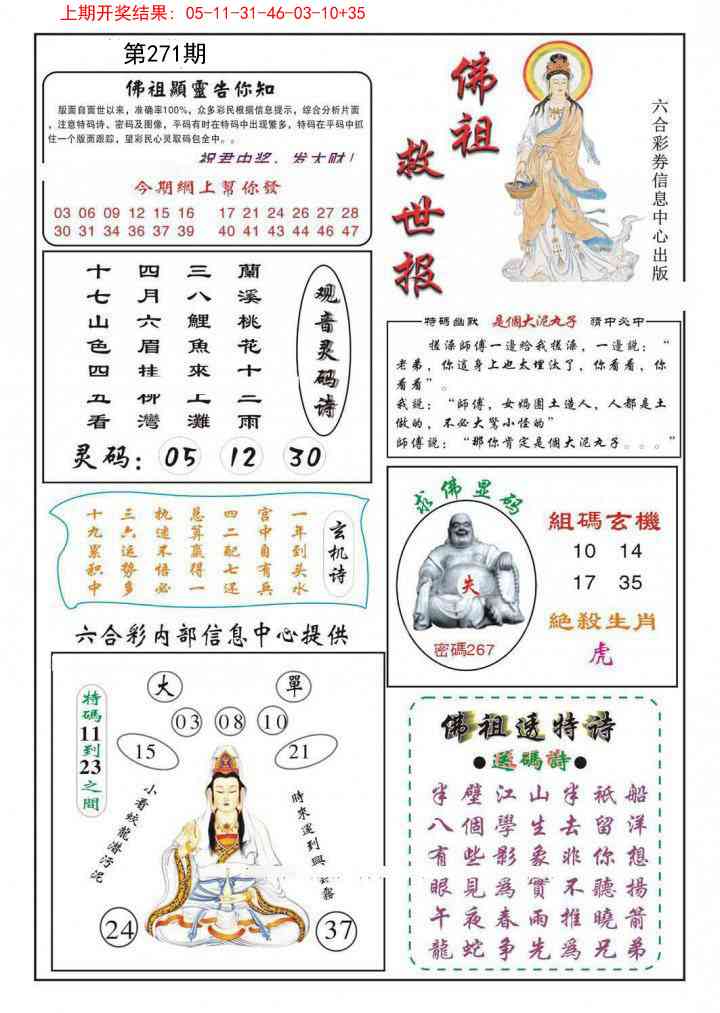 上期开奖结果：05-11-31-46-03-10+35
第271期
佛祖顯靈告你知
版面自面世以来，准确率100%，众多彩民根据信息提示，综合分析片面
，注意特码诗、密码及图像，平码有时在特码中出现繁多，特码在平码中抓
住一个版面跟踪，望彩民心灵取码包全中。。
祝君中奖，发大财！
今期網上幫你發
03 06 09 12 15 16 17 21 24 26 27 28
30 31 34 36 37 39 40 41 43 44 46 47
佛祖救世报
六合彩券信息中心出版
观音灵码诗
蘭溪桃花十二雨
三八鯉魚來上灘
四月六眉挂柳灣
十七山色四五看
灵码：05 12 30
特碼幽默 是個大泥丸子 猜中必中
搓澡師傅一邊给我搓澡，一邊說：“
老弟，你這身上也太埋汰了，你看看，你
看看”。
我説：“師傅，女媧團土造人，人都是土
做的，不必大驚小怪的”
師傅説：“那你肯定是個大泥丸子。。。”
玄机诗
一年到头水
宫中自有兵
四二配七还
总算赢得一
执迷不悟必
三六运势多
十九累积中
求佛显码
失
密碼267
組碼玄機
10 14
17 35
絶殺生肖
虎
六合彩内部信息中心提供
特碼11到23之間
大
單
03 08 10
15
21
小看蛟龍潜污泥
時來運到興
霧
24
37
佛祖透特诗
送碼詩
半壁江山半祇船
八個學生去留洋
有些影象非你想
眼見爲實不聽揚
午夜春雨推曉箭
龍蛇争先爲兄弟